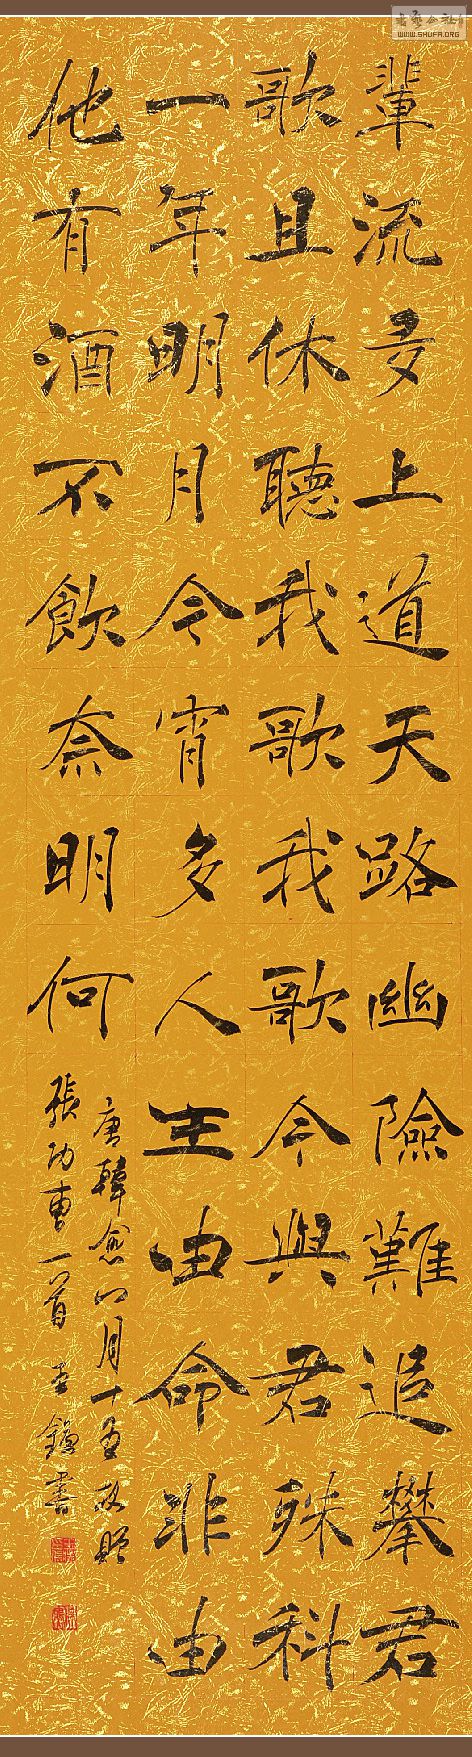 書藝公社
WWW.SHUFA.ORG
輩流多上道天路幽險難追攀君
歌且休聽我歌我歌今與君殊科
一年明月今宵多人生由命非由
他有酒不飲奈明何
唐韓愈八月十五夜贈
張功曹一首 書